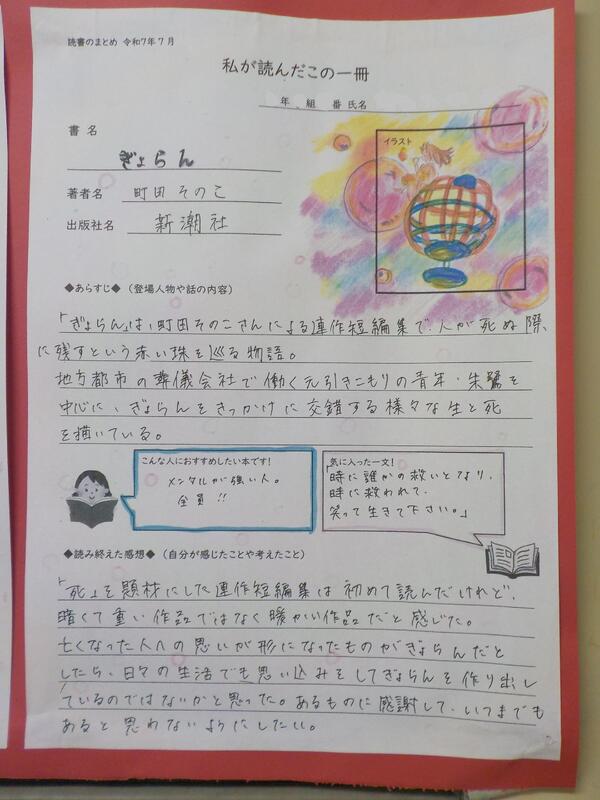 読書のまとめ 令和7年7月
私が読んだこの一冊
年 組 番 氏名
書 名
ぎょらん
著者名 町田 そのこ
出版社名 新潮社
イラスト
◆あらすじ◆ (登場人物や話の内容)
「ぎょらん」は、町田そのこさんによる連作短編集で、人が死ぬ際
に残すという赤い珠を巡る物語。
地方都市の葬儀会社で働く元引きこもりの青年・朱鷺を
中心に、ぎょらんをきっかけに交錯する様々な生と死
を描いている。
こんな人におすすめしたい本です!
メンタルが強い人。
全員!!
気に入った一文!
「時に誰かの救いとなり、
時に救われて、
笑って生きて下さい。」
◆読み終えた感想◆ (自分が感じたことや考えたこと)
「死」を題材にした連作短編集は初めて読んだけれど、
暗くて重い作品ではなく暖かい作品だと感じた。
亡くなった人への思いが形になったものがぎょらんだと
したら、日々の生活でも思い込みをしてぎょらんを作り出し
ているのではないかと思った。あるものに感謝して、いつまでも
あると思わないようにしたい。